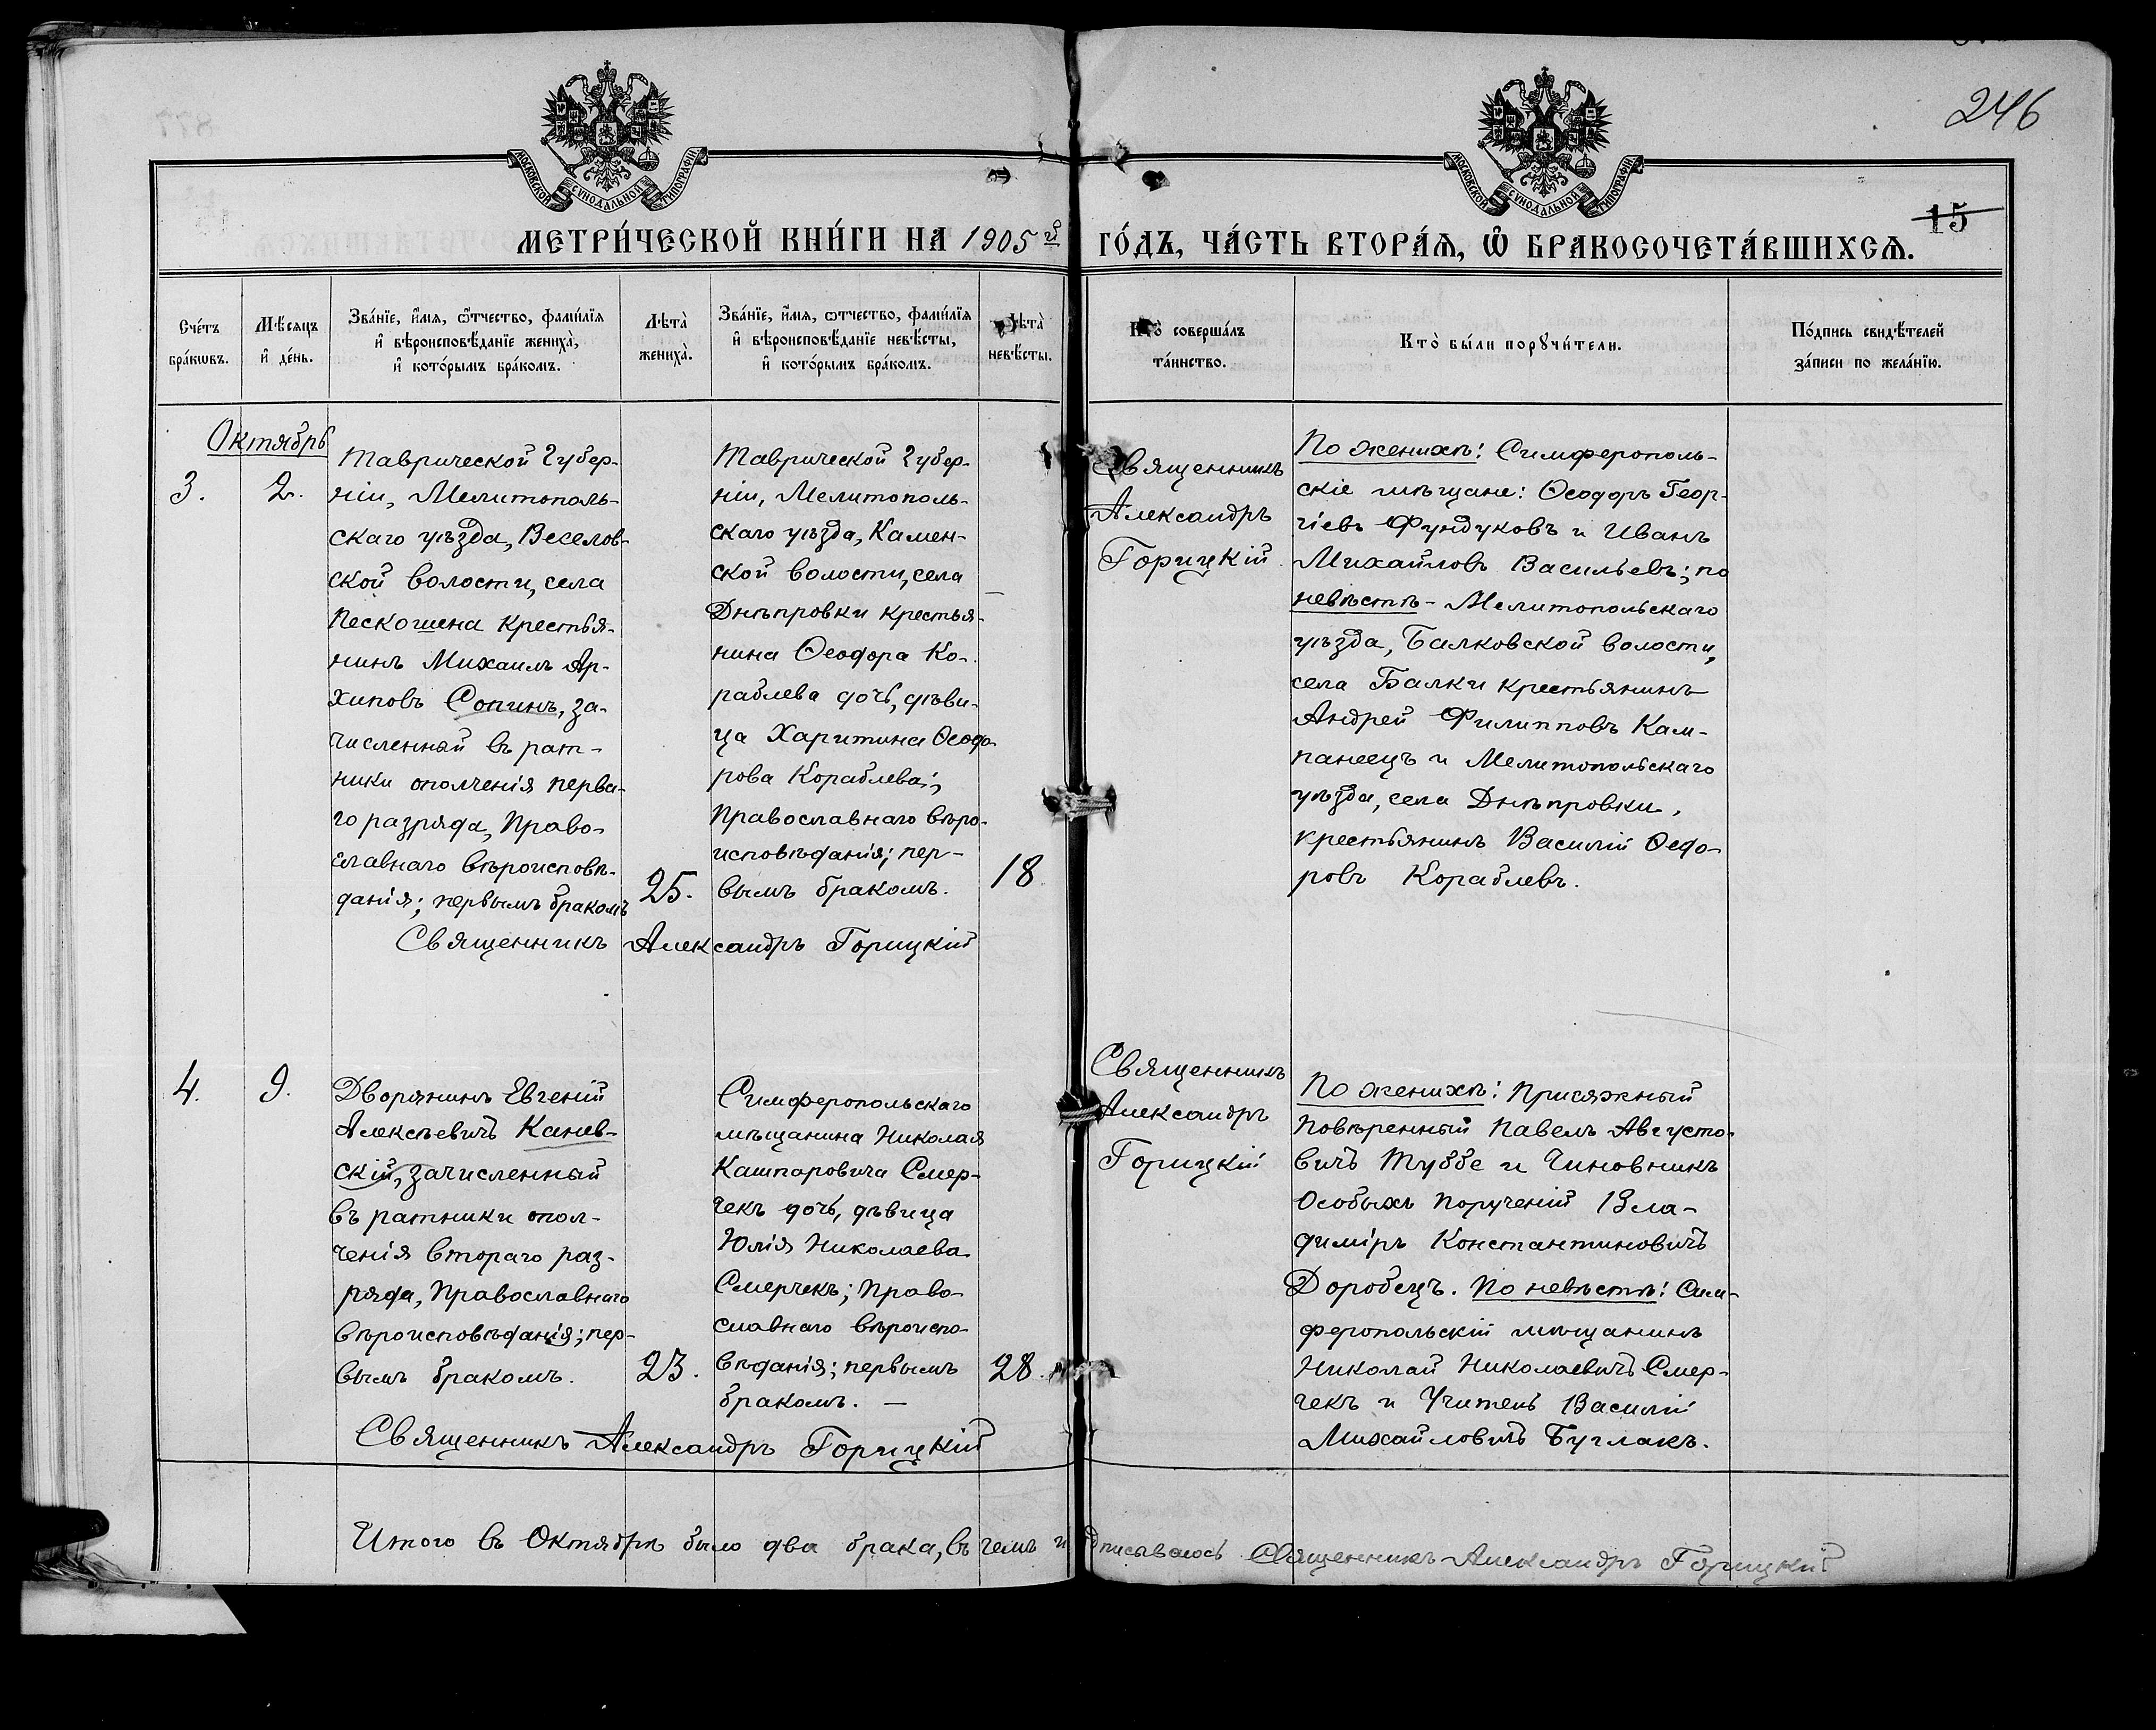 246
МОСКОВСКОЙ СѴНОДАЛЬНОЙ ТИПОГРАФІИ
МОСКОВСКОЙ СѴНОДАЛЬНОЙ ТИПОГРАФІИ
15
МЕТРИ́ЧЕСКОЙ КНИ́ГИ НА 1905 й ГО́ДЪ, ЧА́СТЬ ВТОРА́Ѧ, Ѽ БРАКОСОЧЕТА́ВШИХСѦ.
Сче́тъ
бра́кѡвъ.
Мѣ́сяцъ
и҆ де́нь.
Зва́нїе, и҆́мя, ѻ҆́тчество, фами́лїя
и҆ вѣроисповѣ́данїе жениха̀,
и҆ кото́рымъ бра́комъ.
Лѣта̀
жениха̀.
Зва́нїе, и҆́мя, ѻ҆́тчество, фами́лїя
и҆ вѣроисповѣ́данїе невѣ́сты,
и҆ кото́рымъ бра́комъ.
Лѣта̀
невѣ́сты.
Кто̀ соверша́лъ
та́инство.
Кто̀ бы́ли порꙋчи́тели.
По́дпись свидѣ́телей
за́писи по жела́нїю.
Октябрь
3.
2.
Таврической Губер-
ніи, Мелитополь-
скаго уѣзда, Веселов-
ской волости, села
Пескошена крестья-
нинъ Михаилъ Ар-
хиповъ Сопинъ, за-
численный въ рат-
ники ополченія перва-
го разряда, Право-
славнаго вѣроисповѣ-
данія; первымъ бракомъ
25.
Таврической Губер-
ніи, Мелитополь-
скаго уѣзда, Камен-
ской волости, села
Днѣпровки крестья-
нина Ѳеодора Ко-
раблева дочь, дѣви-
ца Харитина Ѳеодо-
рова Кораблева;
Православнаго вѣро-
исповѣданія; пер-
вымъ бракомъ.
18
Священникъ Александръ Горицкій
Священникъ
Александръ
Горицкій.
По женихѣ: Симферополь-
скіе мѣщане: Ѳеодоръ Геор-
гіевъ Фундуковъ и Иванъ
Михайловъ Васильевъ; по
невѣстѣ - Мелитопольскаго
уѣзда, Балковской волости,
села Балки крестьянинъ
Андрей Филипповъ Кам-
панеецъ и Мелитопольскаго
уѣзда, села Днѣпровки,
крестьянинъ Василій Ѳедо-
ровъ Кораблевъ.
4.
9.
Дворянинъ Евгеній
Алексѣевичъ Канев-
скій, зачисленный
въ ратники опол-
ченія втораго раз-
ряда, Православнаго
вѣроисповѣданія; пер-
вымъ бракомъ.
23.
Симферопольскаго
мѣщанина Николая
Кашпаровича Смер-
чекъ дочь, дѣвица
Юлія Николаева
Смерчекъ; Право-
славнаго вѣроиспо-
вѣданія; первымъ
бракомъ. —
28.
Священникъ Александръ Горицкій
Священникъ
Александръ
Горицкій
По женихѣ: Присяжный
Повѣренный Павелъ Августо-
вичъ Туббе и Чиновникъ
Особыхъ порученій Вла-
диміръ Константиновичъ
Доробецъ. По невѣстѣ: Сим-
феропольскій мѣщанинъ
Николай Николаевичъ Смер-
чекъ и Учитель Василій
Михайловичъ Буглакъ.
Итого въ Октябрѣ было два брака, въ чемъ подписываюсь Священникъ Александръ Горицкій